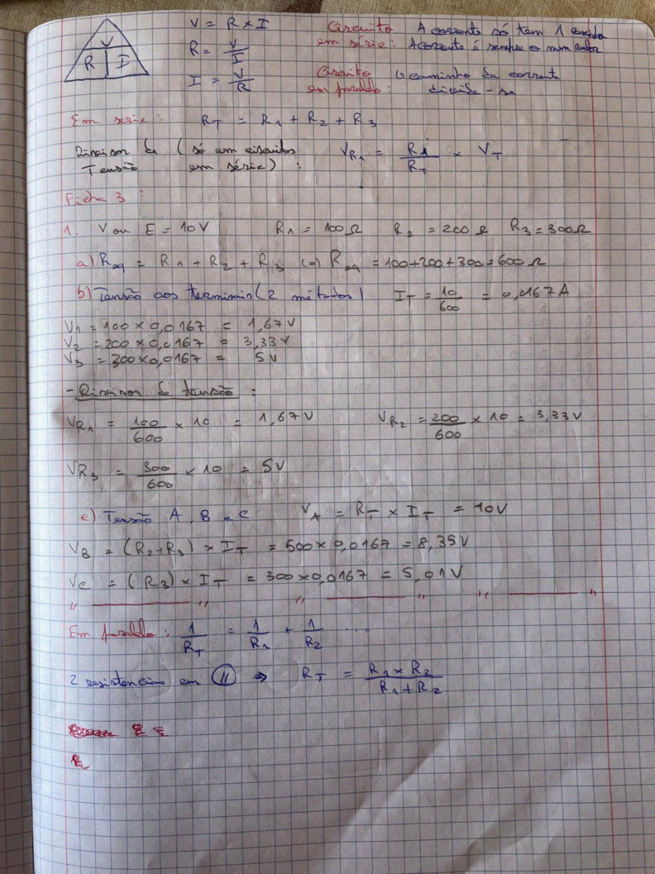 V = R × I
R = V/I
I = V/R
V
R I
Circuito em série: A corrente só tem 1
A corrente é sempre o mesmo valor
Circuito em paralelo: O caminho da corrente divide-se
Em série: RT = R1 + R2 + R3
Divisor de Tensão (só em circuitos em série): VR1 = R1/RT × VT
Ficha 3
1. V ou E = 10V R1 = 100Ω R2 = 200Ω R3 = 300Ω
a) Req = R1 + R2 + R3 (=) Req = 100+200+300 = 600Ω
b) Tensão aos terminais (2 métodos) IT = 10/600 = 0,0167A
V1 = 100 × 0,0167 = 1,67V
V2 = 200 × 0,0167 = 3,33V
V3 = 300 × 0,0167 = 5V
- Divisor de tensão:
VR1 = 100/600 × 10 = 1,67V VR2 = 200/600 × 10 = 3,33V
VR3 = 300/600 × 10 = 5V
c) Tensão A, B e C VA = RT × IT = 10V
VB = (R2+R3) × IT = 500 × 0,0167 = 8,35V
VC = (R3) × IT = 300 × 0,0167 = 5,01V
Em paralelo: 1/RT = 1/R1 + 1/R2 ...
2 resistencias em // => RT = R1 × R2/R1 + R2
R